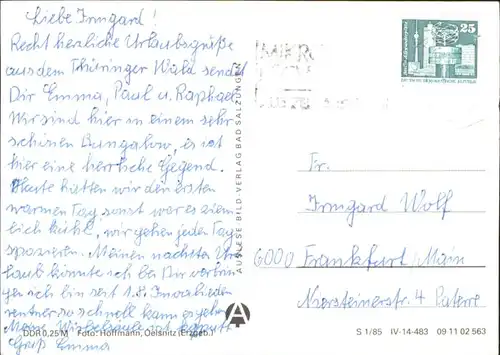 Liebe Irmgard!
Recht herzliche Urlaubsgrüße
aus dem Thüringer Wald sendet
Dir Emma, Paul u. Raphael
Wir sind hier in einem sehr
schönen Bungalow, es ist
hier eine herrliche Gegend.
Heute hatten wir den ersten
warmen Tag, sonst war es ziem
lich kühl, wir gehen jeden Tag
spazieren. Meinen nächsten Ur
laub könnte ich bei Dir verbrin
gen ich bin seit 1.8. Invaliden
rentner so schnell kann es gehen
Meine Wirbelsäule ist kaputt
Gruß Emma
DDR 0,25 M Foto: Hoffmann, Oelsnitz (Erzgeb.)
AUSLESE-BILD-VERLAG BAD SALZUNGEN
A
25
Fr.
Irmgard Wolf
6000 Frankfurt/Main
Niersteinerstr. 4 Paterre
S 1/85 IV-14-483 09 11 02 563